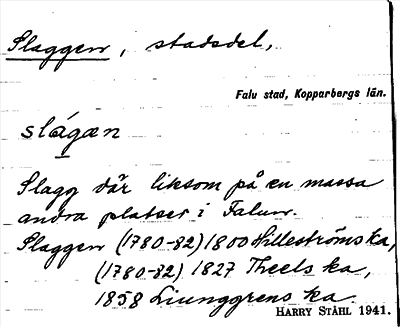 Slaggen, stadsdel,
Falu stad, Kopparbergs län.
slágæn
Slagg där liksom på en massa
andra platser i Falun.
Slaggen (1780-82) 1800 Lilleströms ka,
(1780-82) 1827 Theels ka,
1858 Ljunggrens ka.
HARRY STÅHL 1941.